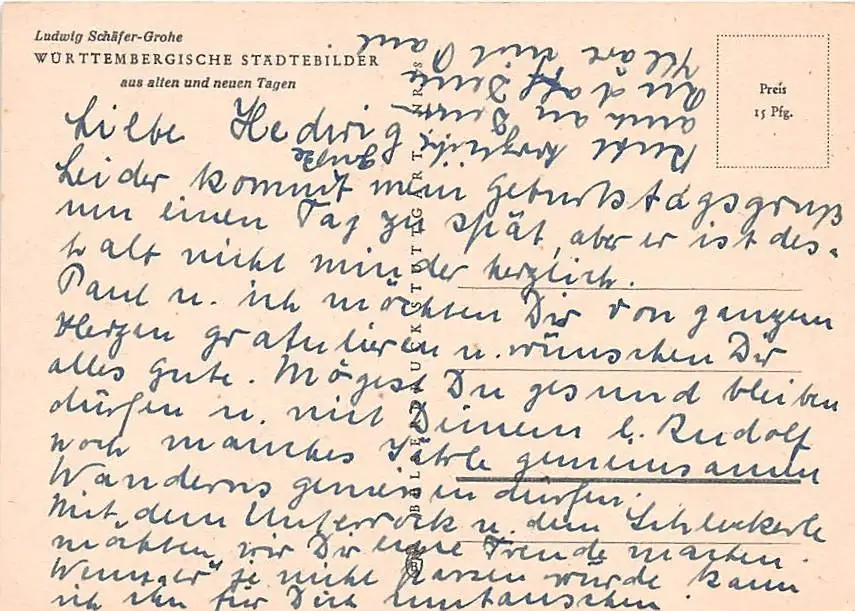 Ludwig Schäfer-Grohe
WÜRTTEMBERGISCHE STÄDTEBILDER
aus alten und neuen Tagen
Preis
15 Pfg.
Liebe Hedwig!
Leider kommt mein Geburtstagsgruß
um einen Tag zu spät, aber er ist des-
halb nicht minder herzlich.
Paul u. ich möchten Dir von ganzem
Herzen gratulieren u. wünschen Dir
alles Gute. Mögest Du gesund bleiben
dürfen u. mit Deinem l. Rudolf
noch manches Jährle gemeinsamen
Wanderns geniesen dürfen.
Mit dem Unterrock u. dem Schleckerle
möchten wir Dir eine Freude machen.
Wenn " je nicht passen würde kann
ich ihn für Dich umtauschen.
Recht herzliche Grüße
auch an Deinen
und
Kläre mit Paul
DRUCK STUTTGART